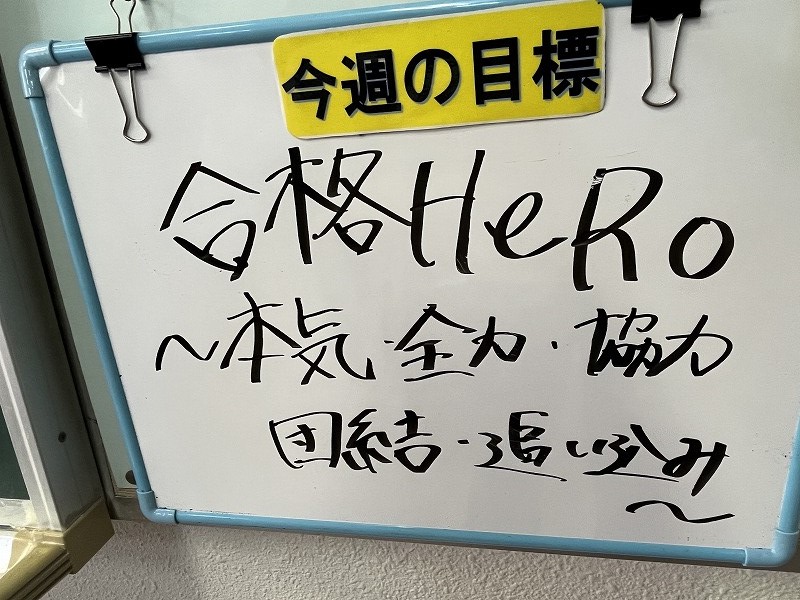 今週の目標
合格HeRo
〜本気・全力・協力
団結・追い込み
〜